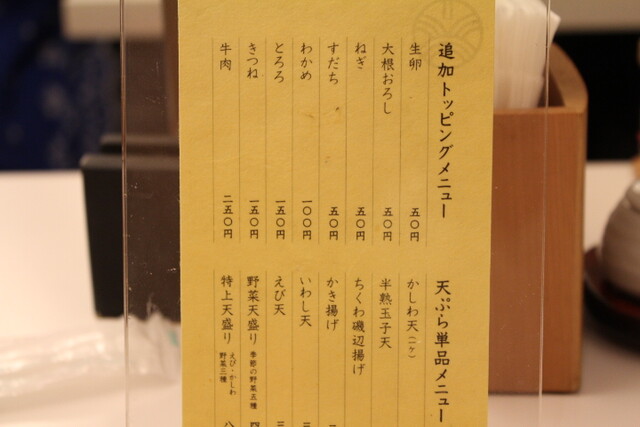 追加トッピングメニュー
生卵 五〇円
大根おろし 五〇円
ねぎ 五〇円
すだち 五〇円
わかめ 一〇〇円
とろろ 一五〇円
きつね 一五〇円
牛肉 二五〇円
天ぷら単品メニュー
かしわ天(一ケ)
半熟玉子天
ちくわ磯辺揚げ
かき揚げ
いわし天
えび天
野菜天盛り 季節の野菜五種
特上天盛り えび・かしわ
野菜三種